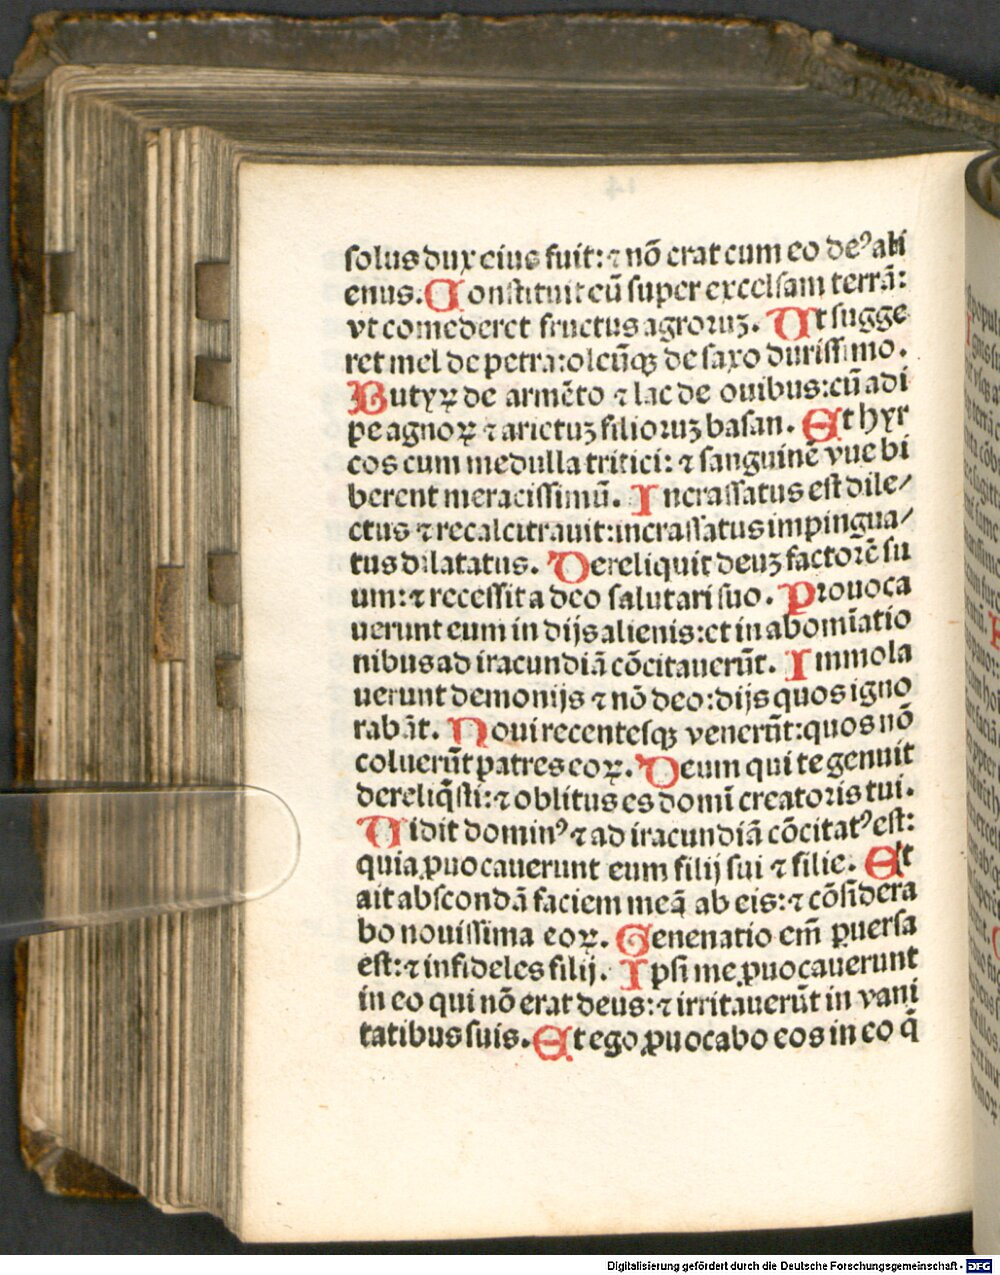 solus dux eius fuit: ⁊ nō crat cum eo deꝰ ali
enus. Constituit eū super excelsam terrā:
vt comederet fructus agroꝛuʒ. Ut sugge
ret mel de petra: oleūqꝫ de saxo durissimo.
Butyꝝ de armēto ⁊ lac de ouibus: cū adi
pe agnoꝝ ⁊ arietuʒ filioꝛuʒ basan. Et hyr
cos cum medulla tritici: ⁊ sanguinē vue bi
berent meracissimū. Incrassatus est dile⸗
ctus ⁊ recalcitrauit: incrassatus impingua⸗
tus dilatatus. Dereliquit deuʒ factorē su
um: ⁊ recessit a deo salutari suo. Prouoca
uerunt eum in dijs alienis: et in abomīatio
nibus ad iracundiā cōcitauerūt. Immola
uerunt demonijs ⁊ nō deo: dijs quos igno
rabāt. Noui recentesqꝫ venerūt: quos nō
coluerūt patres eoꝝ. Deum qui te genuit
dereliq̄sti: ⁊ oblitus es domī creatoꝛis tui.
Uidit dominꝰ ⁊ ad iracundiā cōcitatꝰ est:
quia ꝓuocauerunt eum filij sui ⁊ filie. Et
ait abscondā faciem meā ab eis: ⁊ cōsidera
bo nouissima eoꝝ. Genenatio em̄ ꝑuersa
est: ⁊ infideles filij. Ipsi me ꝓuocauerunt
in eo qui nō erat deus: ⁊ irritauerūt in vani
tatibus suis. Et ego ꝓuocabo eos in eo q̄
Digitalisierung gefördert durch die Deutsche Forschungsgemeinschaft - DFG